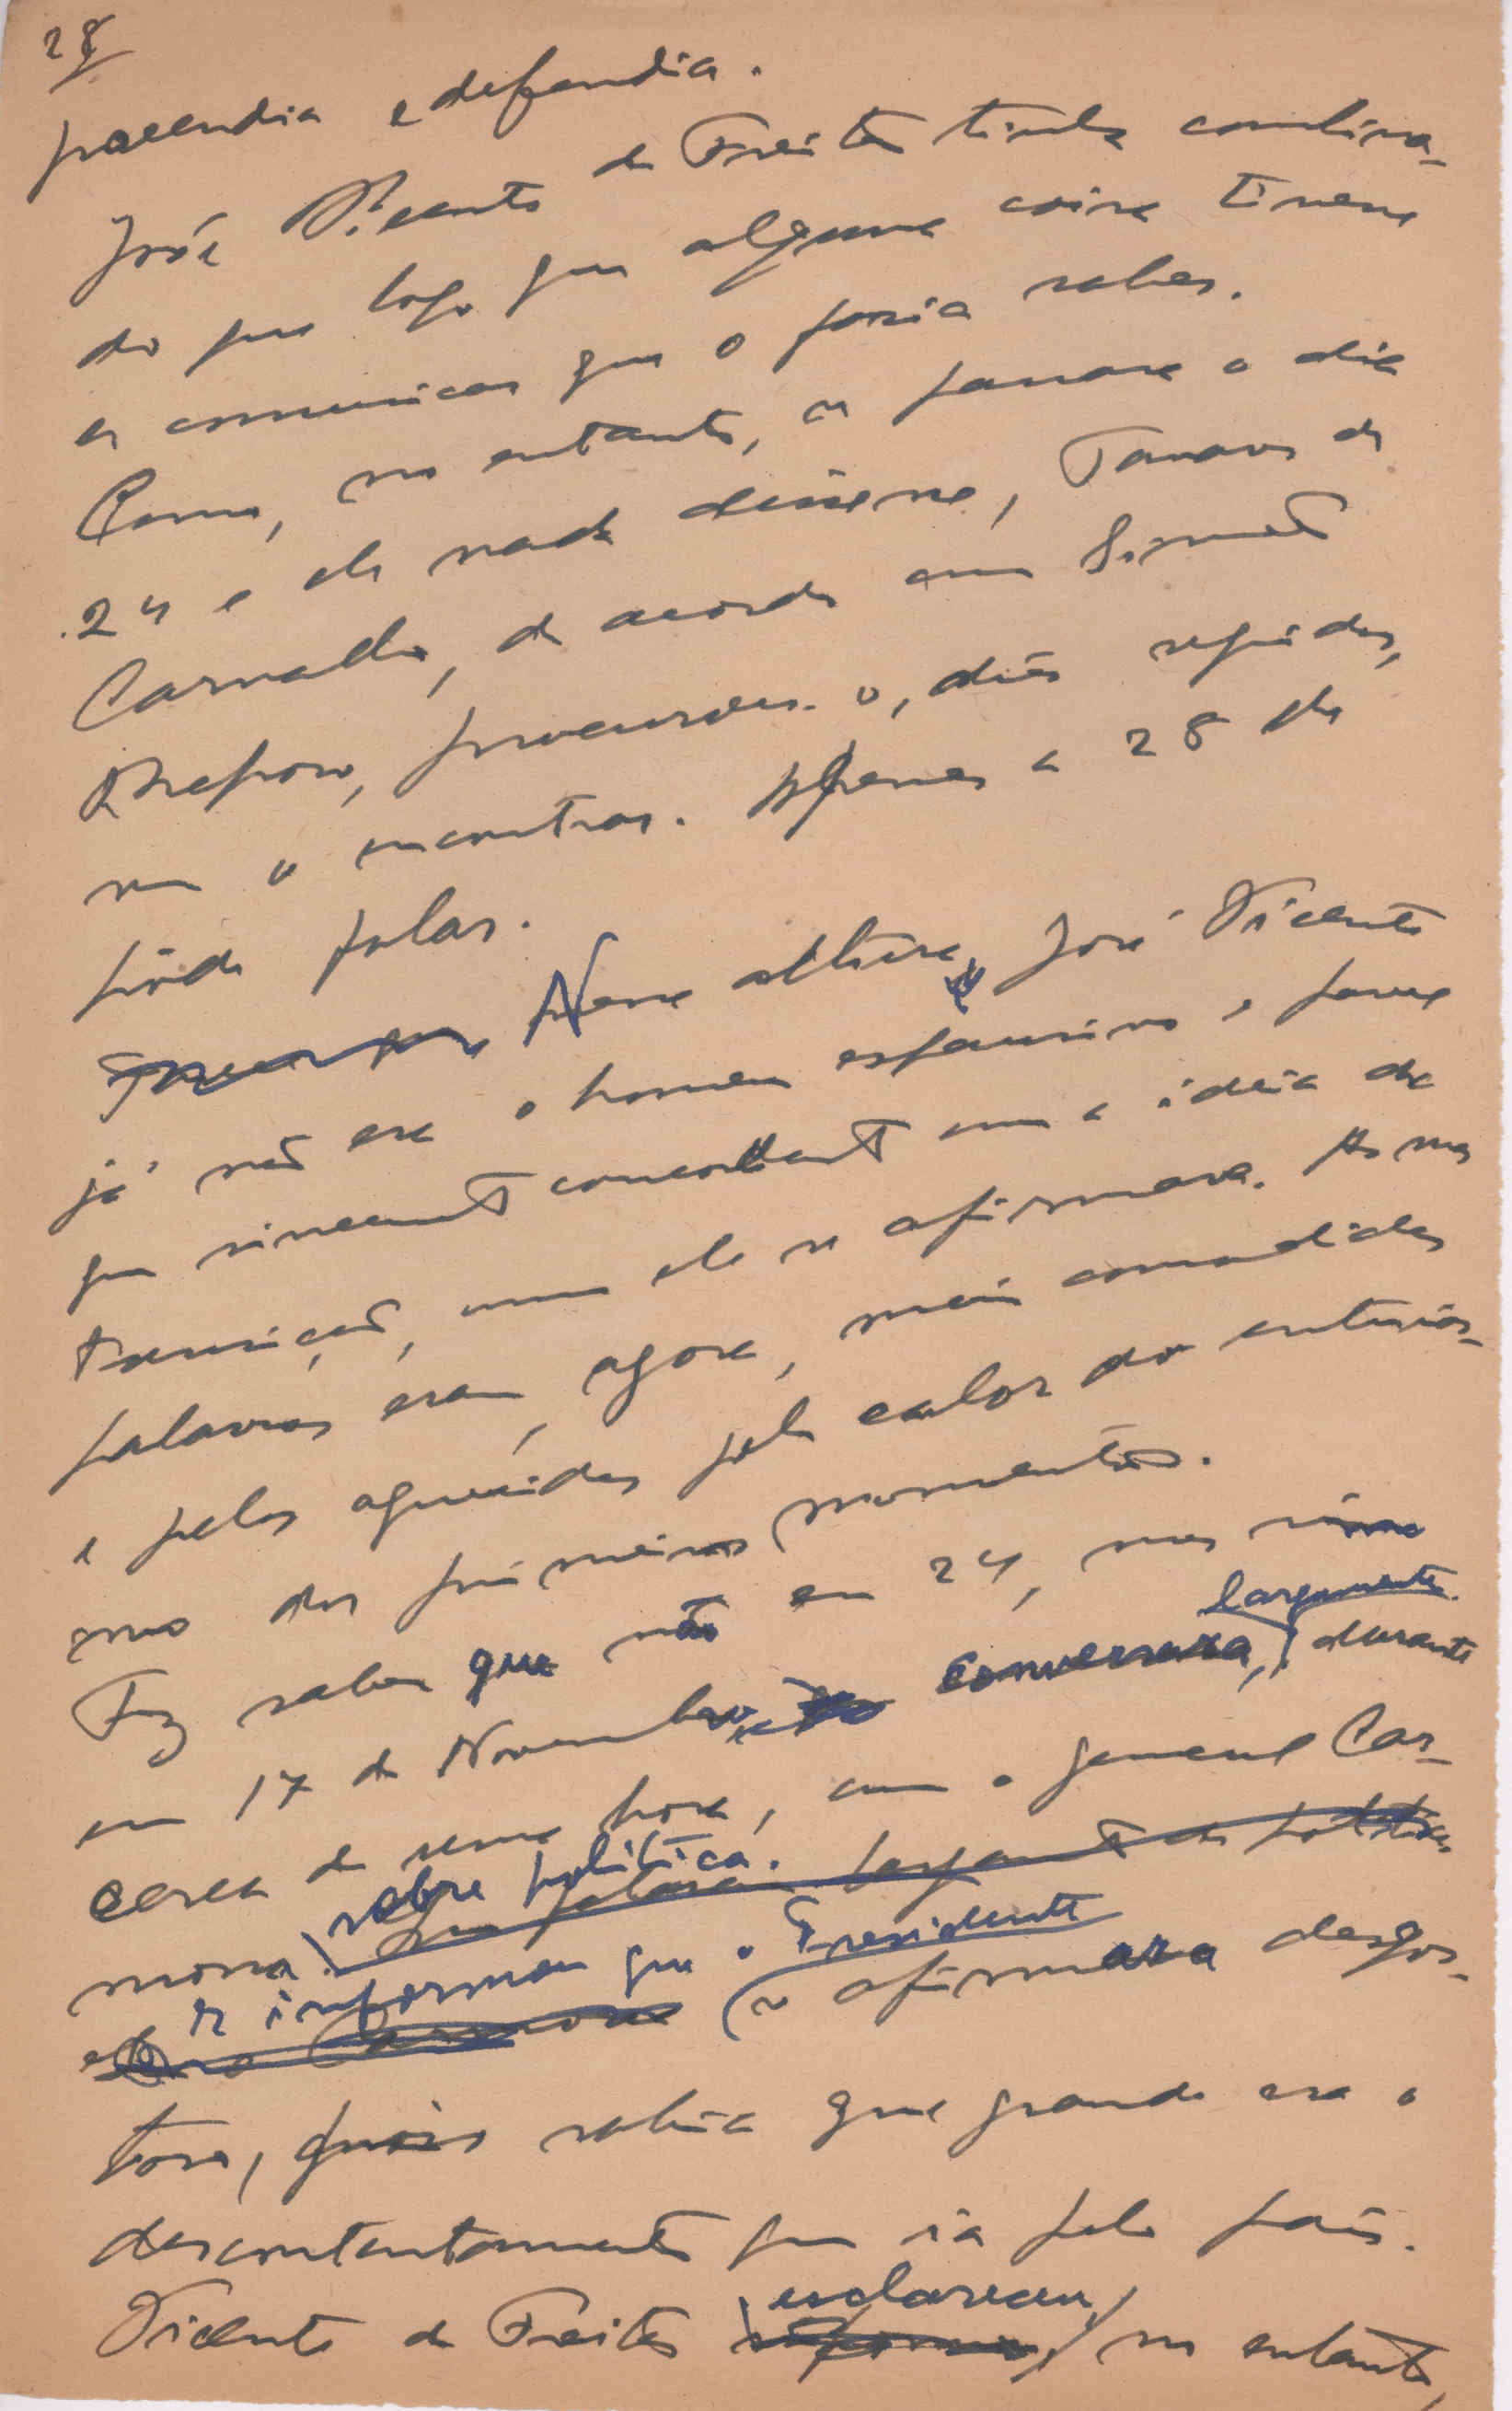 28
pacendia e defendia.
José Vicente de Freitas tinha combina-
do que logo que alguma coisa tivesse
a comunicar que o faria saber.
Como, no entanto, se passasse o dia
24 e ele nada dissesse, Tamagnini de
Carvalho, de acordo com Sinel de
procurou-o, dias seguidos,
sem o encontrar. Apenas a 28 lhe
pôde falar.
Nessa altura, José Vicente
já não era o homem expansivo e franco
que sinceramente concordante com a ideia da
transição, como ele se afirmara. As suas
palavras eram, agora, mais comedidas
e pelos aquecidas pelo calor do entusias-
mo dos primeiros momentos.
Fez saber que não em 24, mas sim
em 17 de Novembro conversara, largamente, durante
cerca de uma hora, com o general Car-
mona sobre política.
e informou que o Presidente se afirmara desgos-
toso, pois sabia que grande era o
descontentamento que ia pelo país.
Vicente de Freitas esclareceu, no entanto,